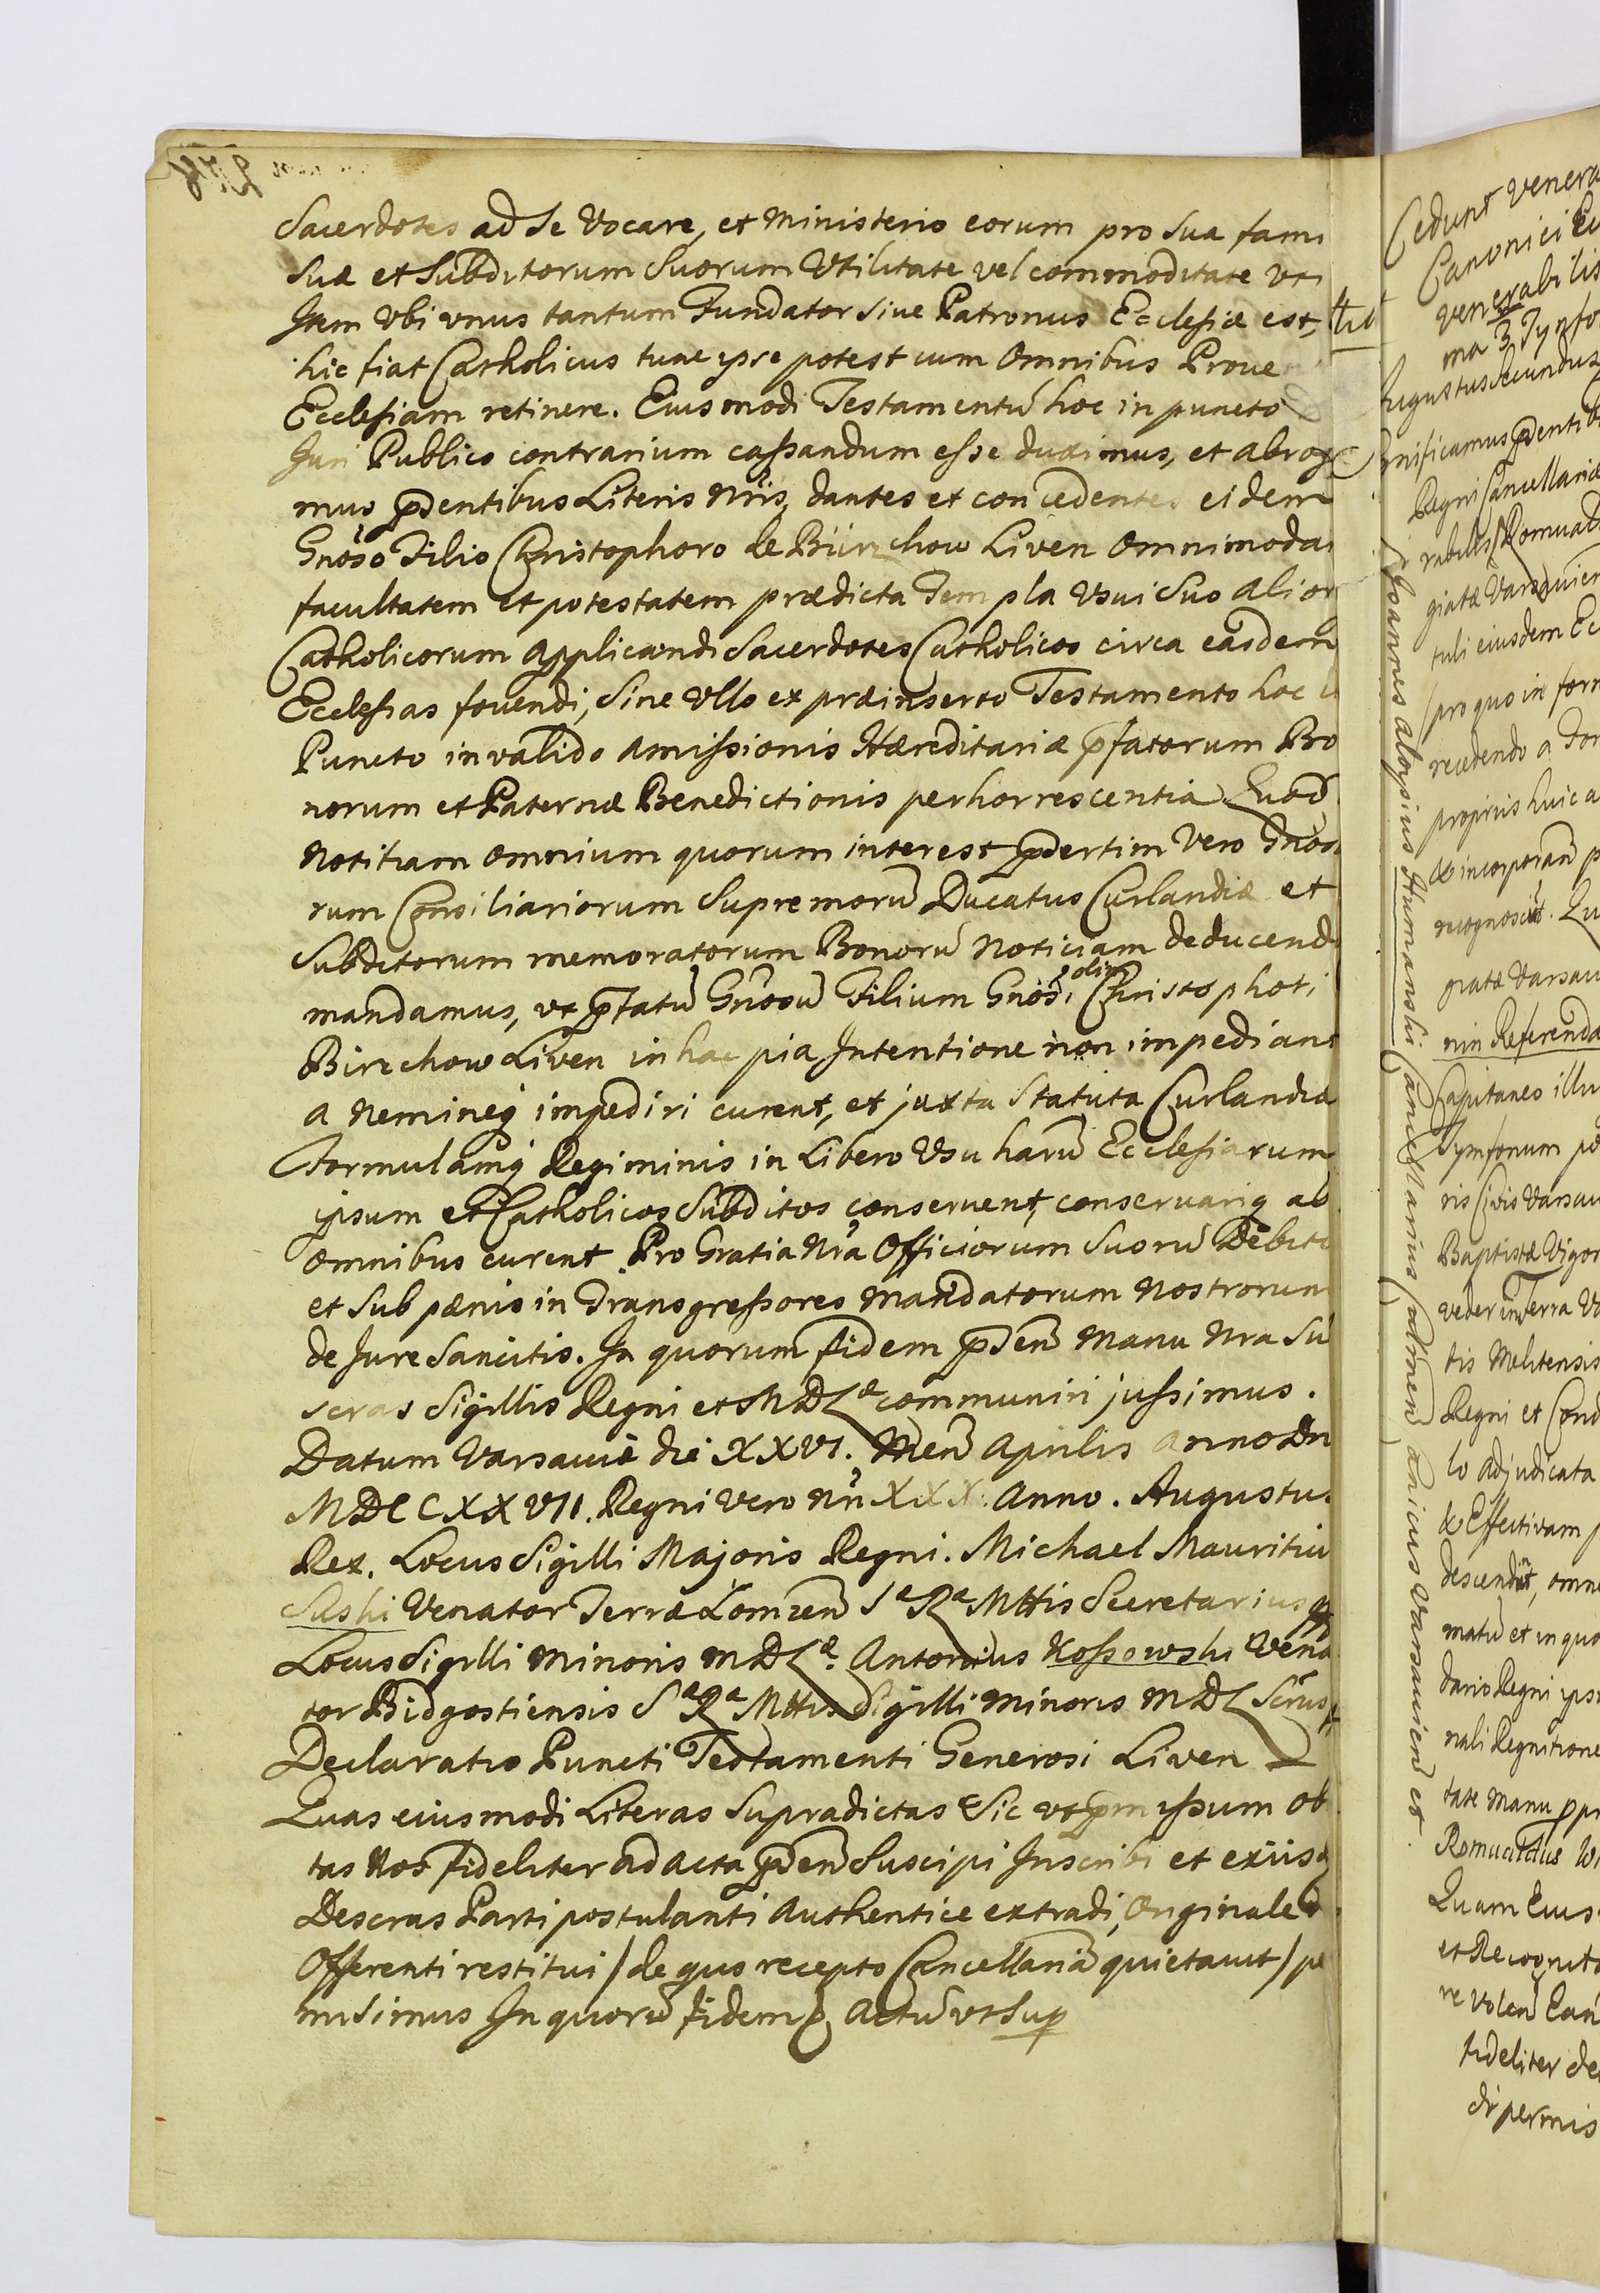 Sacerdotes ad se vocare, et Ministerio eorum pro sua fami
sua et Subditorum Suorum Utilitate vel commoditate
Item Ubi unus tantum Fundator sive Patronus Ecclesiæ est,
hic fiat Catholicus tunc ipse potest cum Omnibus Prove
Ecclesiam retinere. Eiusmodi Testamentū hoc in puncto
Juri Publico contrarium cassandum esse duximus, et abrog
mus pñtibus Literis Nris, dantes et concedentes eidem
Gnoso Filio Christophoro de Birzchow Liven Omnimoda
facultatem et potestatem prædicta Templa Usui Suo alior
Catholicorum applicandi Sacerdotes Catholicos circa easdem
Ecclesias fovendi, Sine Ullo ex præinserto Testamento hoc
Puncto invalido amissionis Hæreditariæ pfatorum Bo
norum et Paternæ Benedictionis perhorrescentia Quod
Notitiam omnium quorum interest psertim vero Gnoso
rum Consiliariorum Supremorū Ducatus Curlandiæ et
Subditorum memoratorum Bonorū Noticiam deducend
mandamus, ut pfatū Gnosū Filium Gnosi olim Christophori
Birzchow Liven in hac pia Intentione non impediant
a Nemineq impediri curent, et juxta Statuta Curlandiæ
Formulamq Regiminis in Libero Usu harū Ecclesiarum
ipsum et Catholicos Subditos conservent, conservariq ab
omnibus curent Pro Gratia Nra Officiorum Suorū Debito
et Sub pænis in Transgressores Mandatorum Nostrorum
de Jure Sancitis. In quorum fidem psen Manu Nra Su
scras Sigillis Regni et M D L communiri jussimus.
Datum Varsaviæ die XXVI. Men Aprilis Anno Dn
MDCCXXVII. Regni Vero Nri XXX. Anno. Augustus
Rex. Locus Sigilli Majoris Regni. Michael Mauritiu
Suski Venator Terræ Łomzen S R Mttis Secretarius
Locus Sigilli Minoris M D L. Antonius Kossowski Vena
tor Bidgostiensis S R Mttis Sigilli Minoris M D L Scrius
Declaratio Puncti Testamenti Generosi Liven
Quas eiusmodi Literas Supradictas Sic ut pmissum ob
tas Nos fideliter ad acta psen Suscipi Inscribi et exiis
Descras Parti postulanti Authentice extradi, Originale
Offerenti restitui / de quo recepto Cancellariā quietavit / pe
misimus In quorū fidem Actū ut Sup
Cedunt venera
Canonici
venerabilis
ma Tynfo
Augustus Secundus
nificamus pñtib
Regni Cancellariæ
rabilis Romuald
giatæ Varsavien
tuli eiusdem Ec
/ pro quo in for
recedendo a For
propriis huic a
& incorporan p
recognoscit. Qu
giatæ Varsav
nin Referenda
Capitaneo illu
Tymfonum po
ris Civis Varsav
Baptistæ Vigor
in Terra
tis Melitensis
Regni et Cond
lo adjudicata
& Effectivam
descendūt, omne
matū et in quo
dario Regni ips
nali Regnitione
tate manu ppr
Romualdus
Quam Eius
et Recognit
re volen
fideliter de
di permis
Joannes Aloysius Humanski Cancellarius Varsavien et